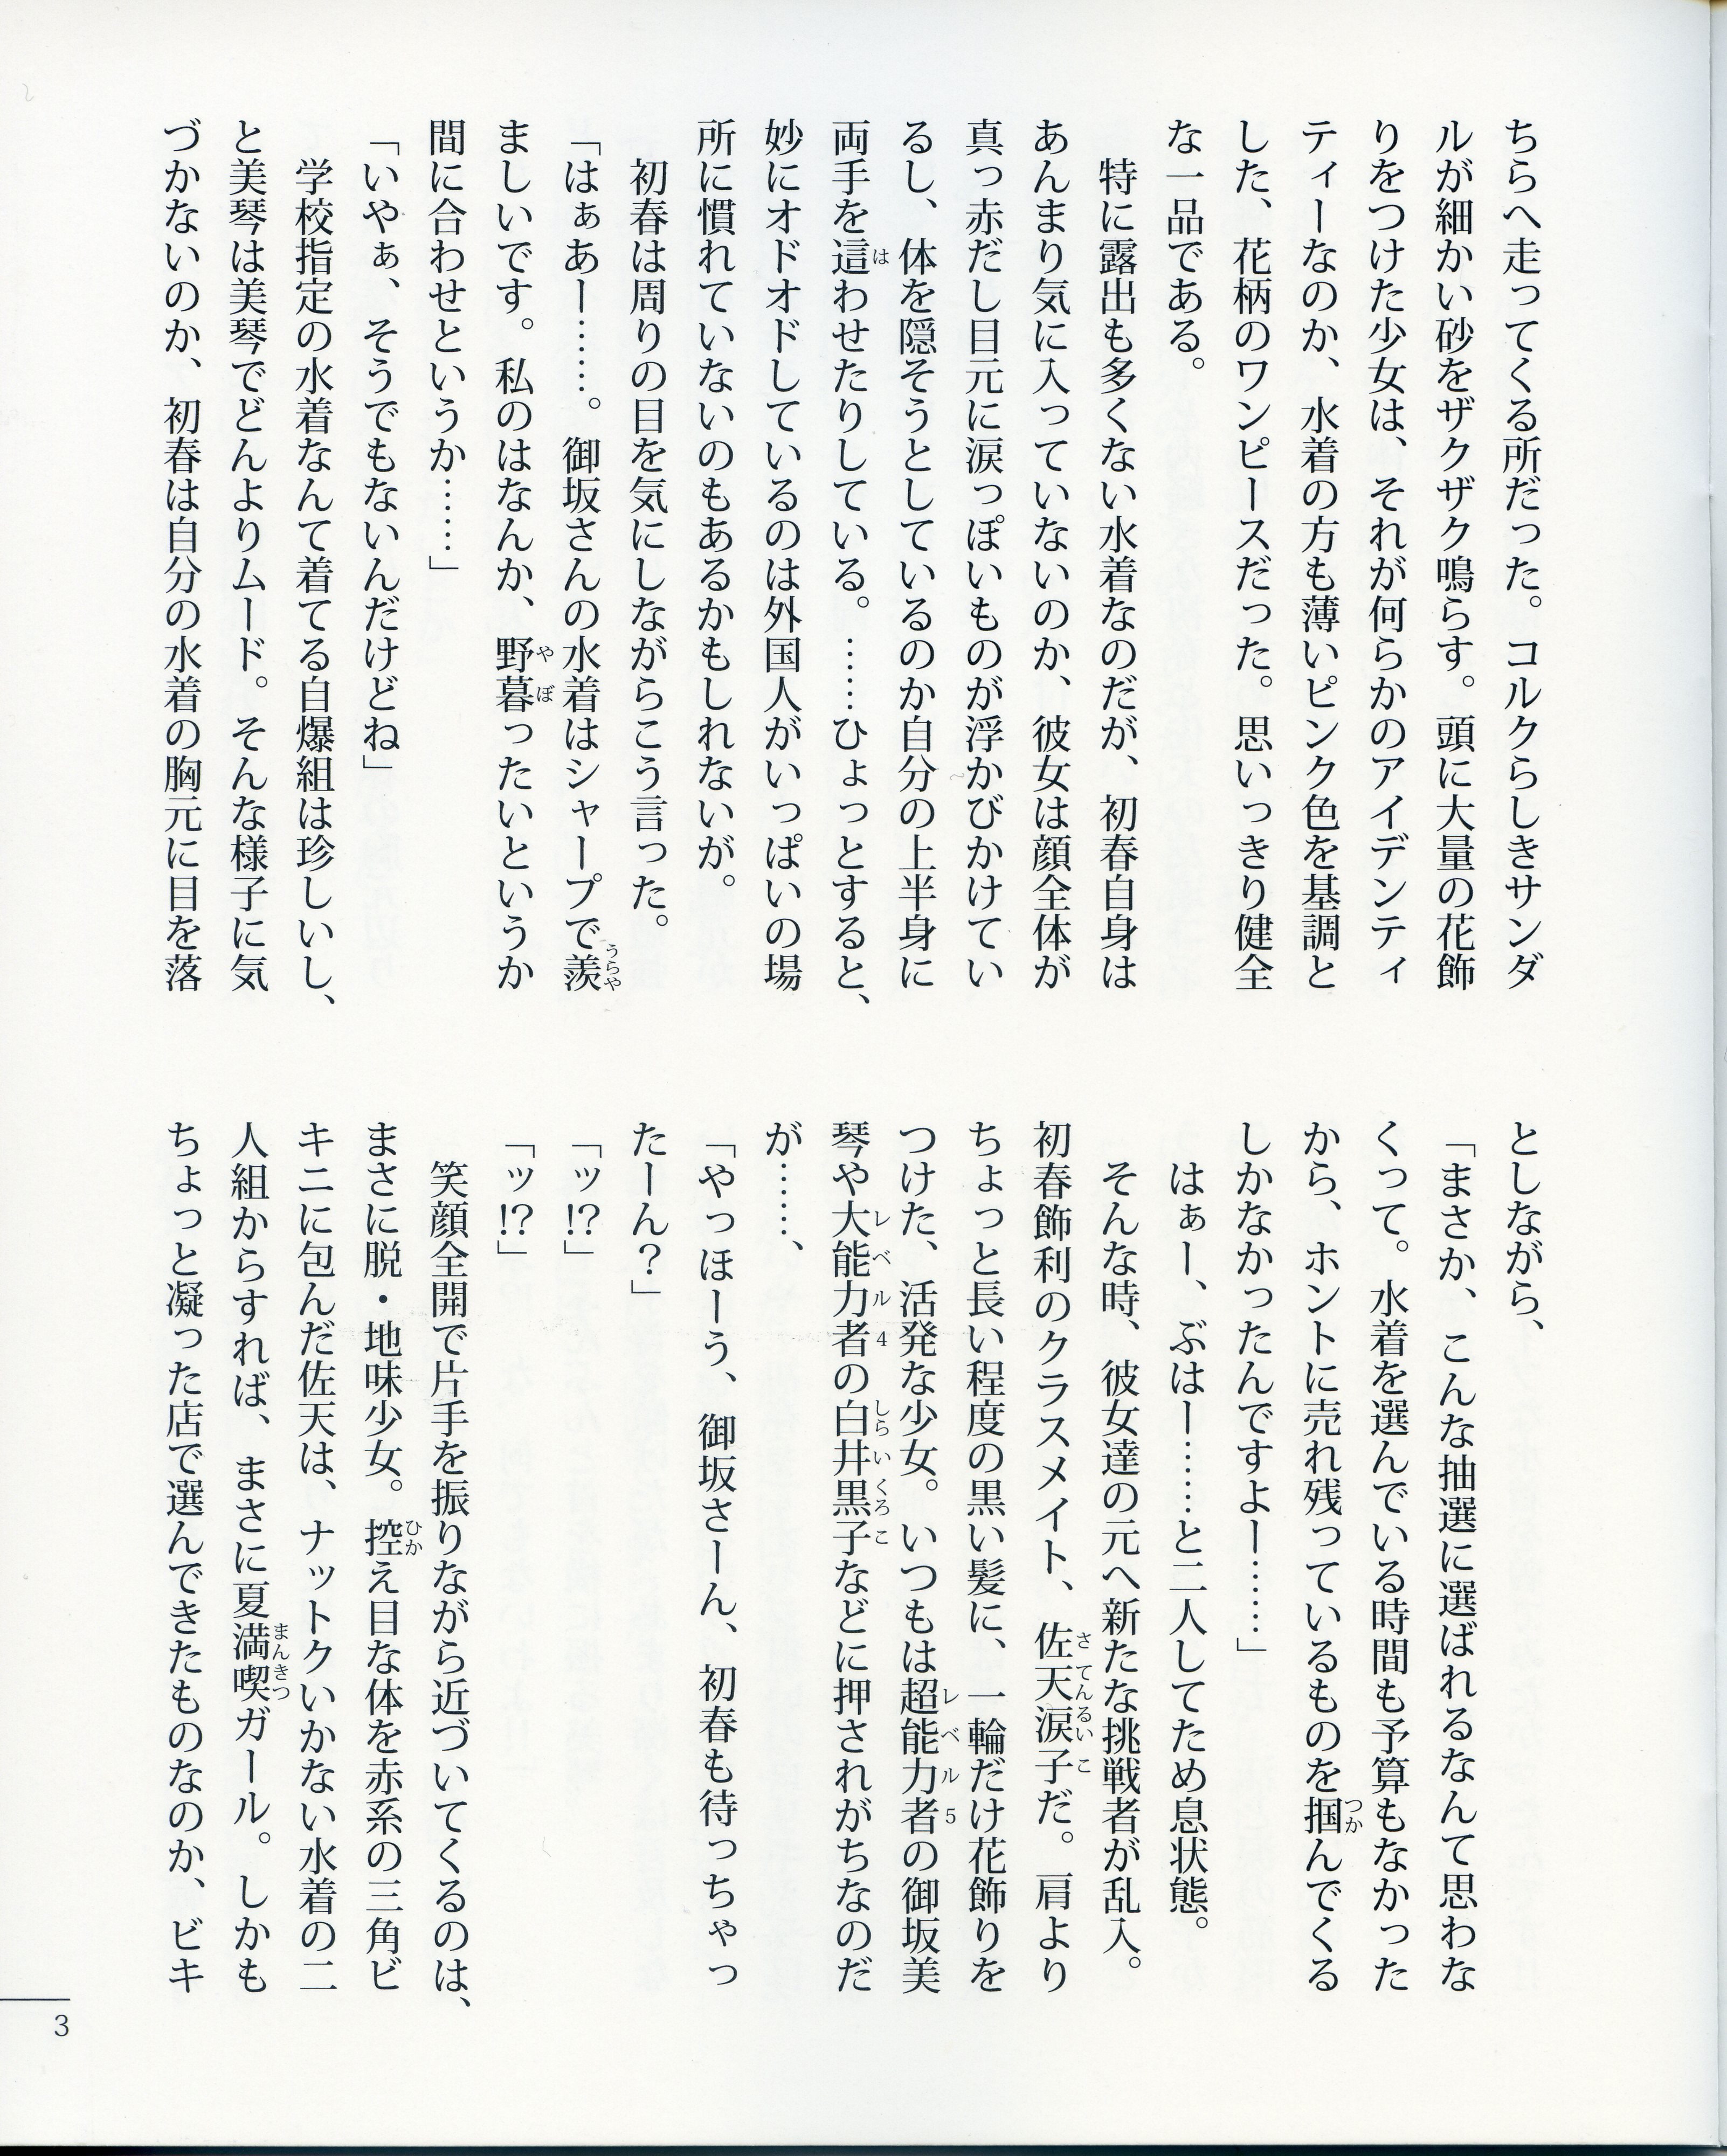 ちらへ走ってくる所だった。コルクらしきサンダ
ルが細かい砂をザクザク鳴らす。頭に大量の花飾
りをつけた少女は、それが何らかのアイデンティ
ティーなのか、水着の方も薄いピンク色を基調と
した、花柄のワンピースだった。思いっきり健全
な一品である。
　特に露出も多くない水着なのだが、初春自身は
あんまり気に入っていないのか、彼女は顔全体が
真っ赤だし目元に涙っぽいものが浮かびかけてい
るし、体を隠そうとしているのか自分の上半身に
両手を這わせたりしている。……ひょっとすると、
妙にオドオドしているのは外国人がいっぱいの場
所に慣れていないのもあるかもしれないが。
　初春は周りの目を気にしながらこう言った。
「はぁあー……。御坂さんの水着はシャープで羨
ましいです。私のはなんか、野暮ったいというか
間に合わせというか……」
「いやぁ、そうでもないんだけどね」
　学校指定の水着なんて着てる自爆組は珍しいし、
と美琴は美琴でどんよりムード。そんな様子に気
づかないのか、初春は自分の水着の胸元に目を落
としながら、
「まさか、こんな抽選に選ばれるなんて思わな
くって。水着を選んでいる時間も予算もなかった
から、ホントに売れ残っているものを掴んでくる
しかなかったんですよー……」
　はぁー、ぶはー……と二人してため息状態。
　そんな時、彼女達の元へ新たな挑戦者が乱入。
初春飾利のクラスメイト、佐天涙子だ。肩より
ちょっと長い程度の黒い髪に、一輪だけ花飾りを
つけた、活発な少女。いつもは超能力者の御坂美
琴や大能力者の白井黒子などに押されがちなのだ
が……、
「やっほーう、御坂さーん、初春も待っちゃっ
たーん？」
「ッ!?」
「ッ!?」
　笑顔全開で片手を振りながら近づいてくるのは、
まさに脱・地味少女。控え目な体を赤系の三角ビ
キニに包んだ佐天は、ナットクいかない水着の二
人組からすれば、まさに夏満喫ガール。しかも
ちょっと凝った店で選んできたものなのか、ビキ
3